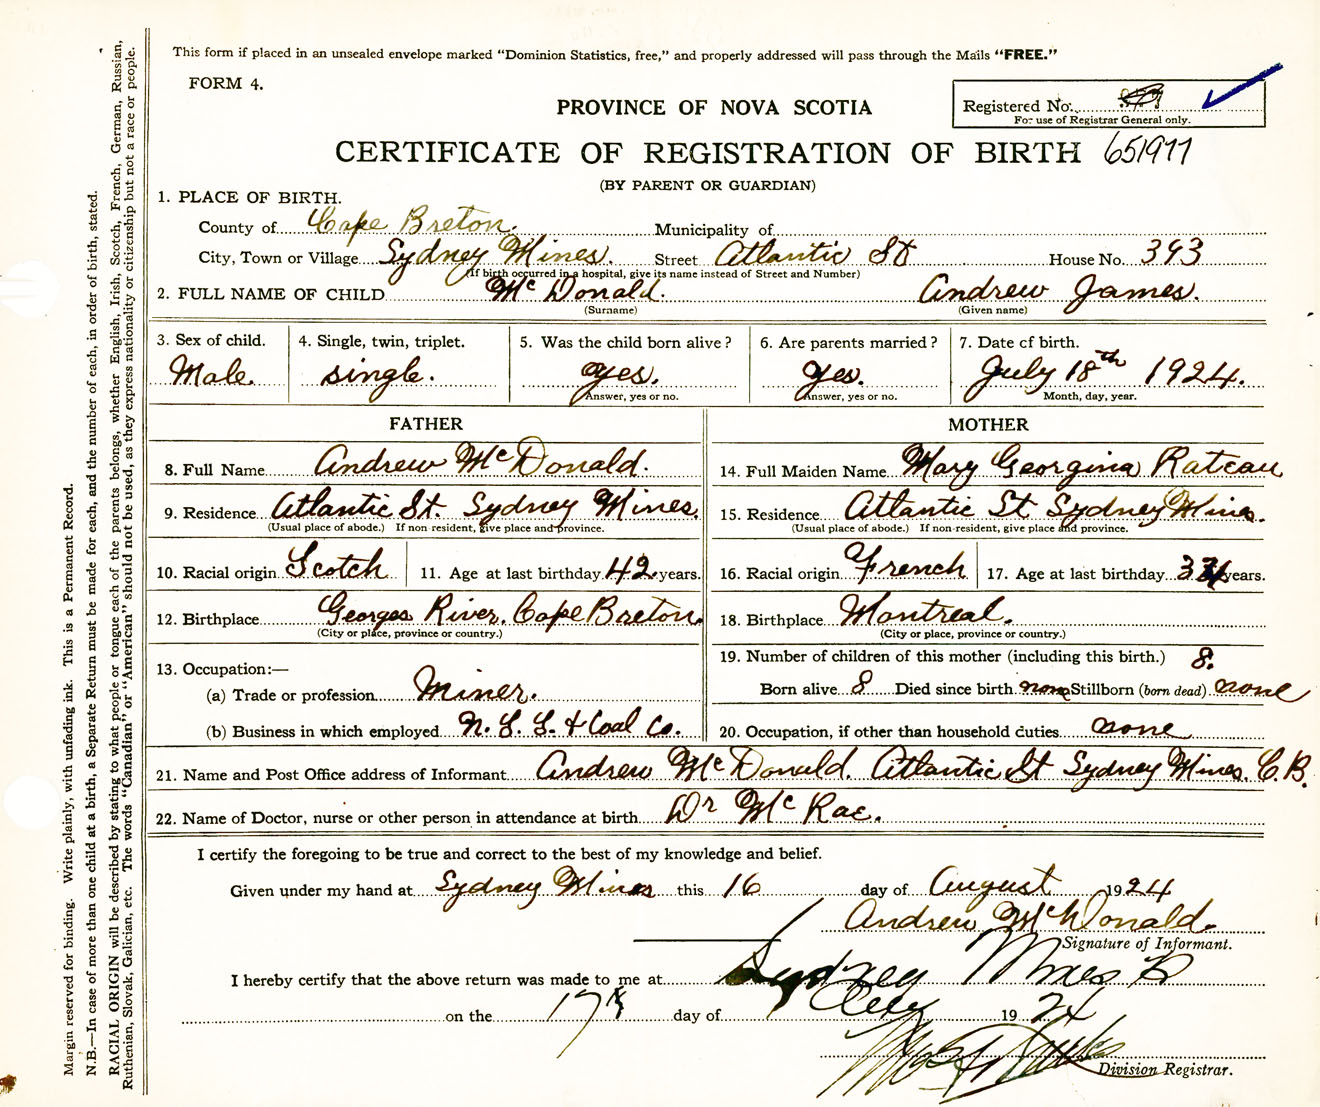 This form if placed in an unsealed envelope marked "Dominion Statistics, free," and properly addressed will pass through the Mails "FREE."
FORM 4.
PROVINCE OF NOVA SCOTIA
Registered No.
For use of Registrar General only.
CERTIFICATE OF REGISTRATION OF BIRTH 651977
(BY PARENT OR GUARDIAN)
1. PLACE OF BIRTH.
County of Cape Breton. Municipality of
City, Town or Village Sydney Mines. Street Atlantic St House No. 393
(If birth occurred in a hospital, give its name instead of Street and Number)
2. FULL NAME OF CHILD McDonald. Andrew James.
(Surname) (Given name)
3. Sex of child. 4. Single, twin, triplet. 5. Was the child born alive? 6. Are parents married? 7. Date of birth.
Male. single. yes. yes. July 18th 1924.
Answer, yes or no. Answer, yes or no. Month, day, year.
FATHER MOTHER
8. Full Name Andrew McDonald. 14. Full Maiden Name Mary Georgina Rateau
9. Residence Atlantic St. Sydney Mines. 15. Residence Atlantic St Sydney Mines.
(Usual place of abode.) If non-resident, give place and province. (Usual place of abode.) If non-resident, give place and province.
10. Racial origin Scotch 11. Age at last birthday 42. years. 16. Racial origin French 17. Age at last birthday years.
12. Birthplace Georges River, Cape Breton. 18. Birthplace Montreal.
(City or place, province or country.) (City or place, province or country.)
13. Occupation:— 19. Number of children of this mother (including this birth.) 8.
(a) Trade or profession Miner. Born alive 8 Died since birth none Stillborn (born dead) none
(b) Business in which employed N. S. S. & Coal Co. 20. Occupation, if other than household duties none
21. Name and Post Office address of Informant Andrew McDonald. Atlantic St Sydney Mines. C.B.
22. Name of Doctor, nurse or other person in attendance at birth Dr McRae.
I certify the foregoing to be true and correct to the best of my knowledge and belief.
Given under my hand at Sydney Mines this 16 day of August 1924
Andrew McDonald.
Signature of Informant.
I hereby certify that the above return was made to me at Sydney Mines
on the 17 day of 1924
Division Registrar.
Margin reserved for binding. Write plainly, with unfading ink. This is a Permanent Record.
N.B.—In case of more than one child at a birth, a Separate Return must be made for each, and the number of each, in order of birth, stated.
RACIAL ORIGIN will be described by stating to what people or tongue each of the parents belongs, whether English, Irish, Scotch, French, German, Russian,
Ruthenian, Slovak, Galician, etc. The words "Canadian" or "American" should not be used, as they express nationality or citizenship but not a race or people.